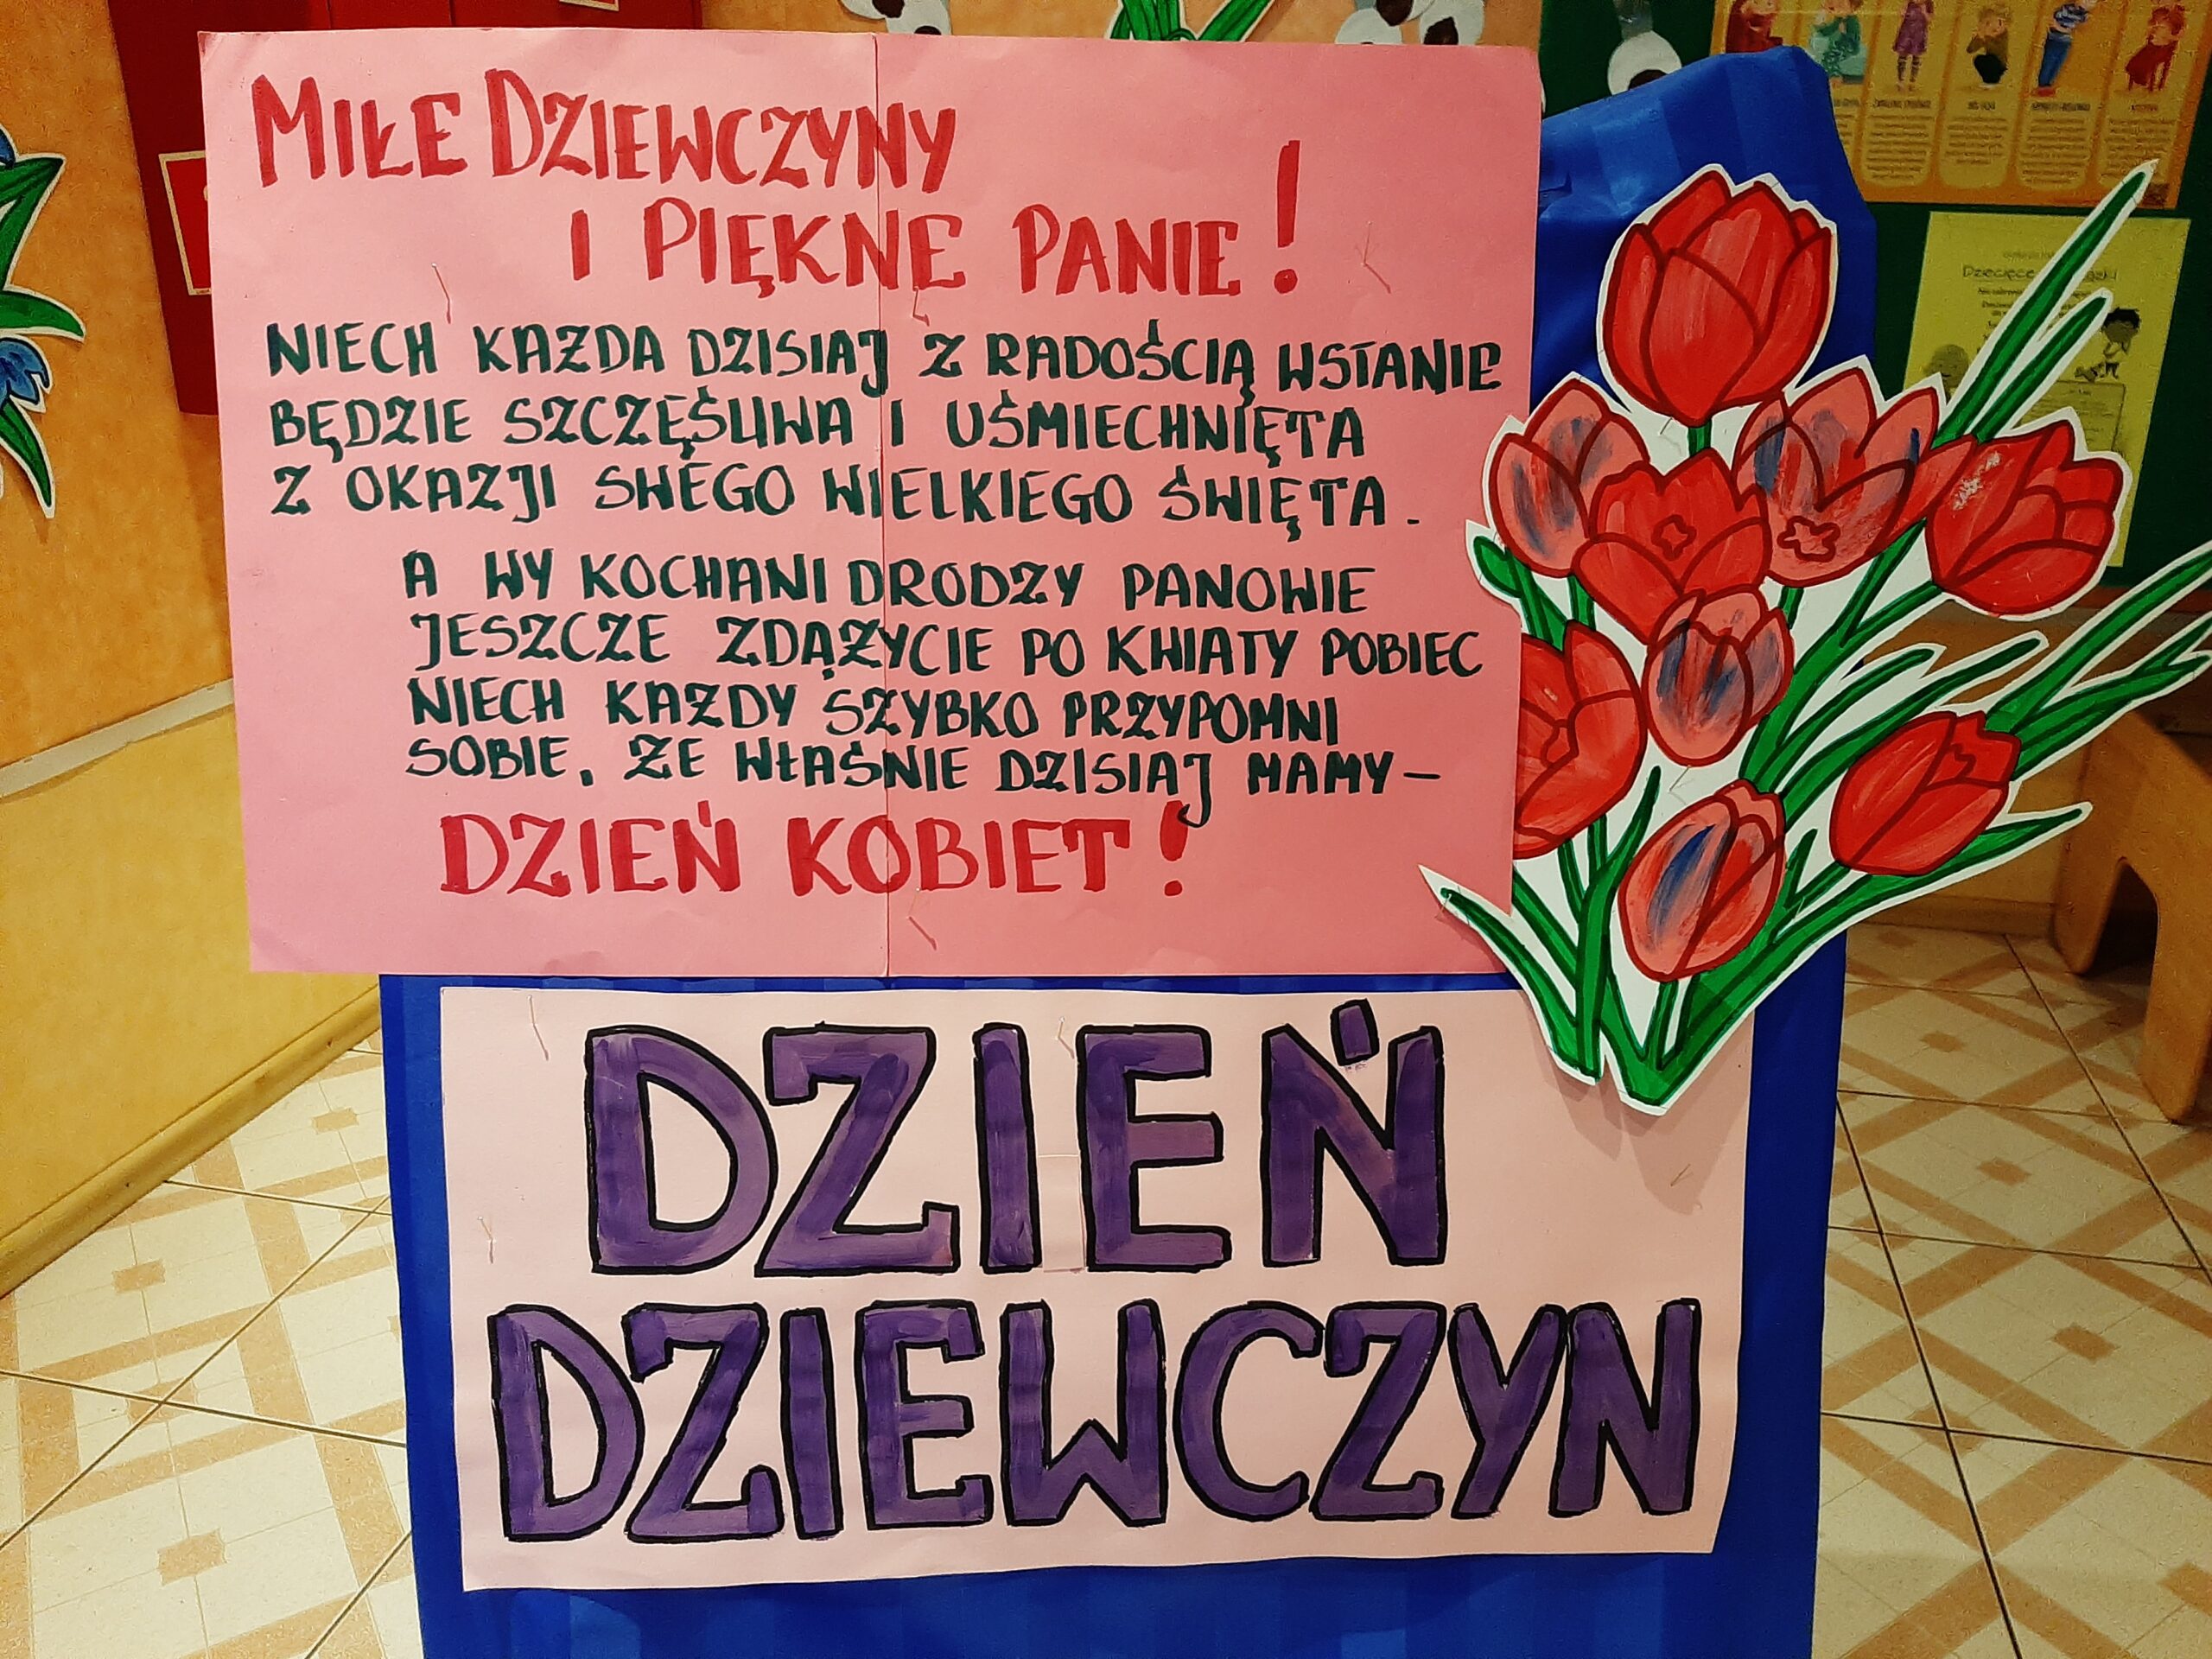 MIŁE DZIEWCZYNY
I PIĘKNE PANIE!
NIECH KAŻDA DZISIAJ Z RADOŚCIĄ WSTANIE
BĘDZIE SZCZĘŚLIWA I UŚMIECHNIĘTA
Z OKAZJI SWEGO WIELKIEGO ŚWIĘTA.
A WY KOCHANI DRODZY PANOWIE
JESZCZE ZDĄŻYCIE PO KWIATY POBIEC
NIECH KAŻDY SZYBKO PRZYPOMNI
SOBIE, ŻE WŁAŚNIE DZISIAJ MAMY –
DZIEŃ KOBIET!
DZIEŃ
DZIEWCZYN
Dziecięce